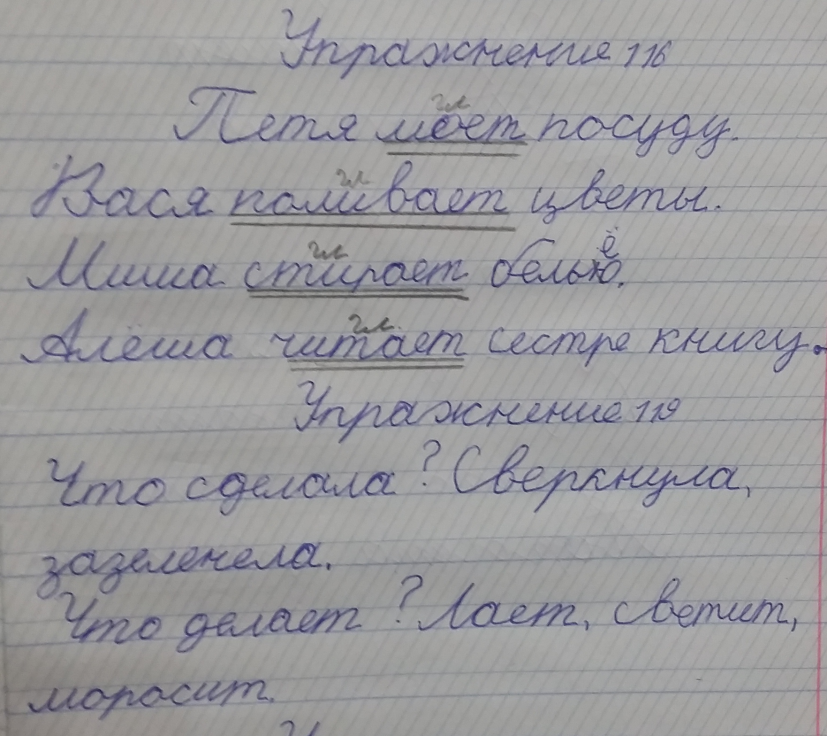 Упражнение 116
гл
Петя моет посуду.
гл
Вася поливает цветы.
гл
Миша стирает бельё.
гл
Алёша читает сестре книгу.
Упражнение 119
Что сделала? Сверкнула,
зазеленела.
Что делает? Лает, светит,
моросит.